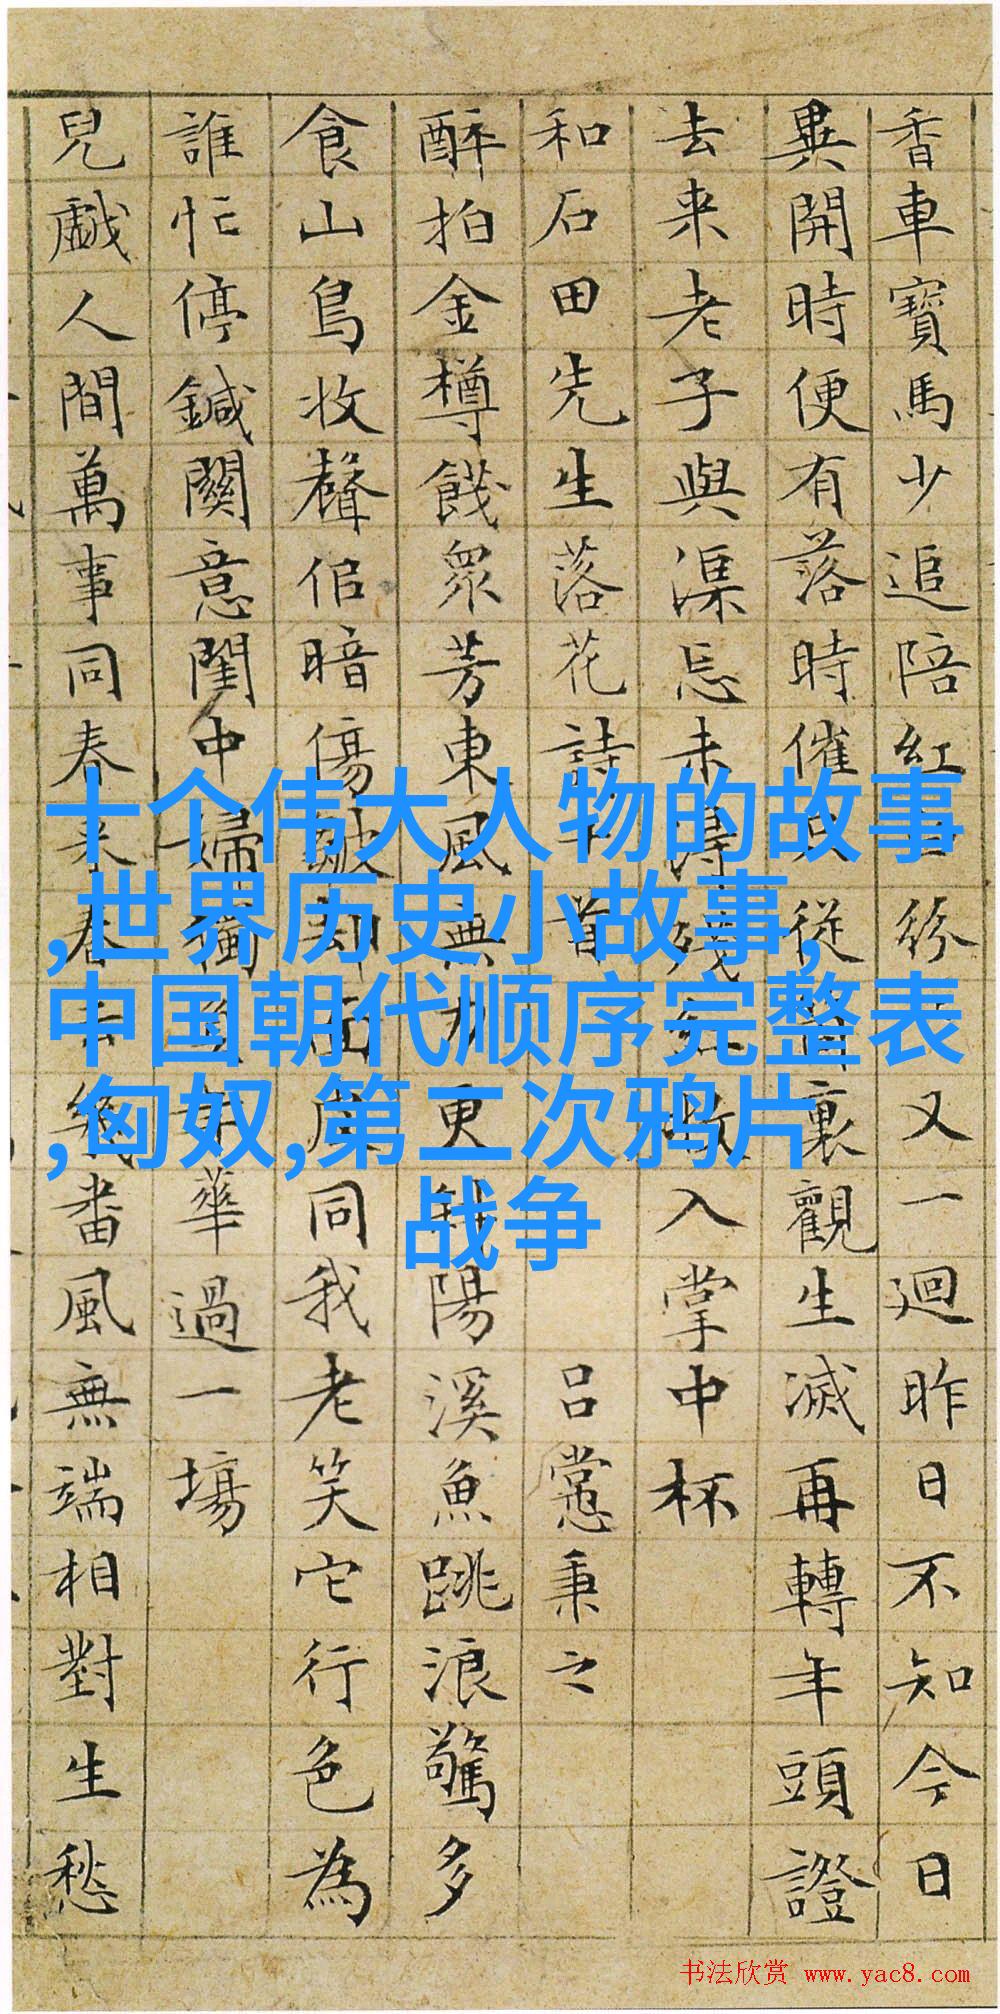 香車寶馬少追陪紅紛又一迴昨日不知今日
異開時便有落時催只從裏觀生滅再轉年頭證
去来老子與渠忘未得殘紅收入掌中杯
和石田先生落花詩十首 呂㦂秉之
醉拍金樽餞眾芳東風無更斜陽溪魚跳浪驚多
食山鳥收聲倍暗傷皺却面同我老笑它行色為
誰忙停鍼闗意閨中婦獨華過一場
兒戯人間萬事同春来春去幾番風無端相對生愁
十个伟大人物的故事
,世界历史小故事,
中国朝代顺序完整表
,匈奴,第二次鸦片
战争
书法欣赏 www.yac8.com